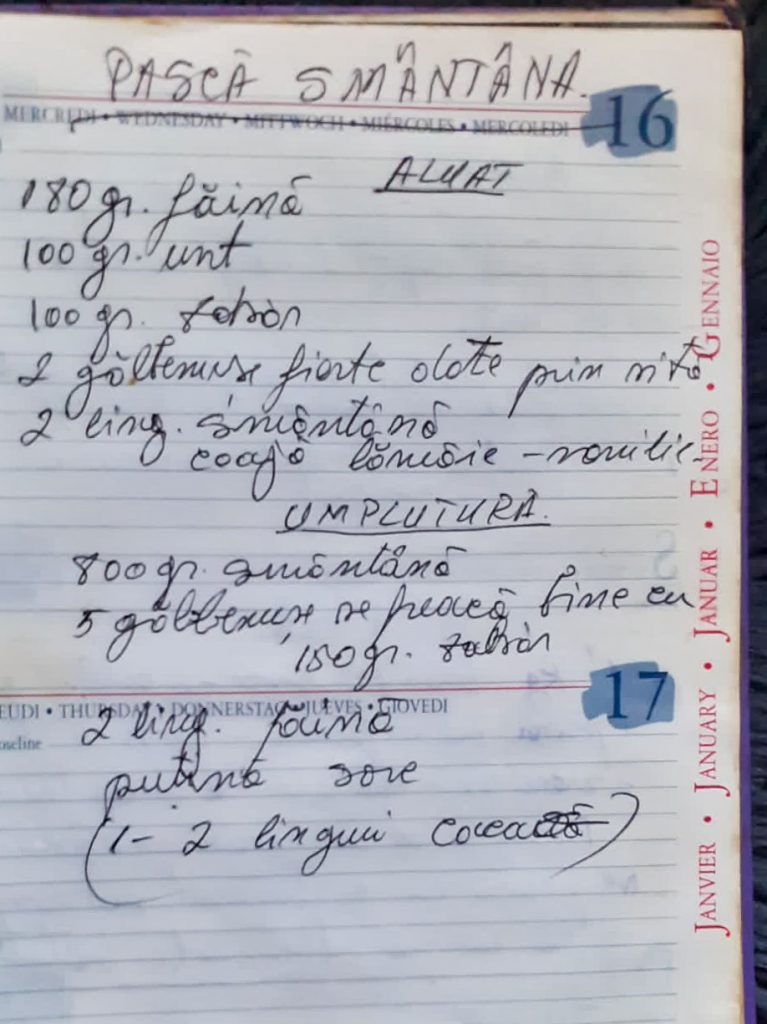 PASCĂ SMÂNTÂNĂ.
MERCREDI • WEDNESDAY • MITTWOCH • MIÉRCOLES • MERCOLEDI 16
ALUAT
180 gr. făină
100 gr. unt
100 gr. zahăr
2 gălbenușe fierte date prin sită
2 ling. smântână
coajă lămâie - vanilie
UMPLUTURĂ.
800 gr. smântână
5 gălbenușe se freacă bine cu
150 gr. zahăr
EUDI • THURSDAY • DONNERSTAG • JUEVES • GIOVEDI 17
oseline
2 ling. făină
puțină sare
(1 - 2 linguri cacao)
JANVIER • JANUARY • JANUAR • ENERO • GENNAIO